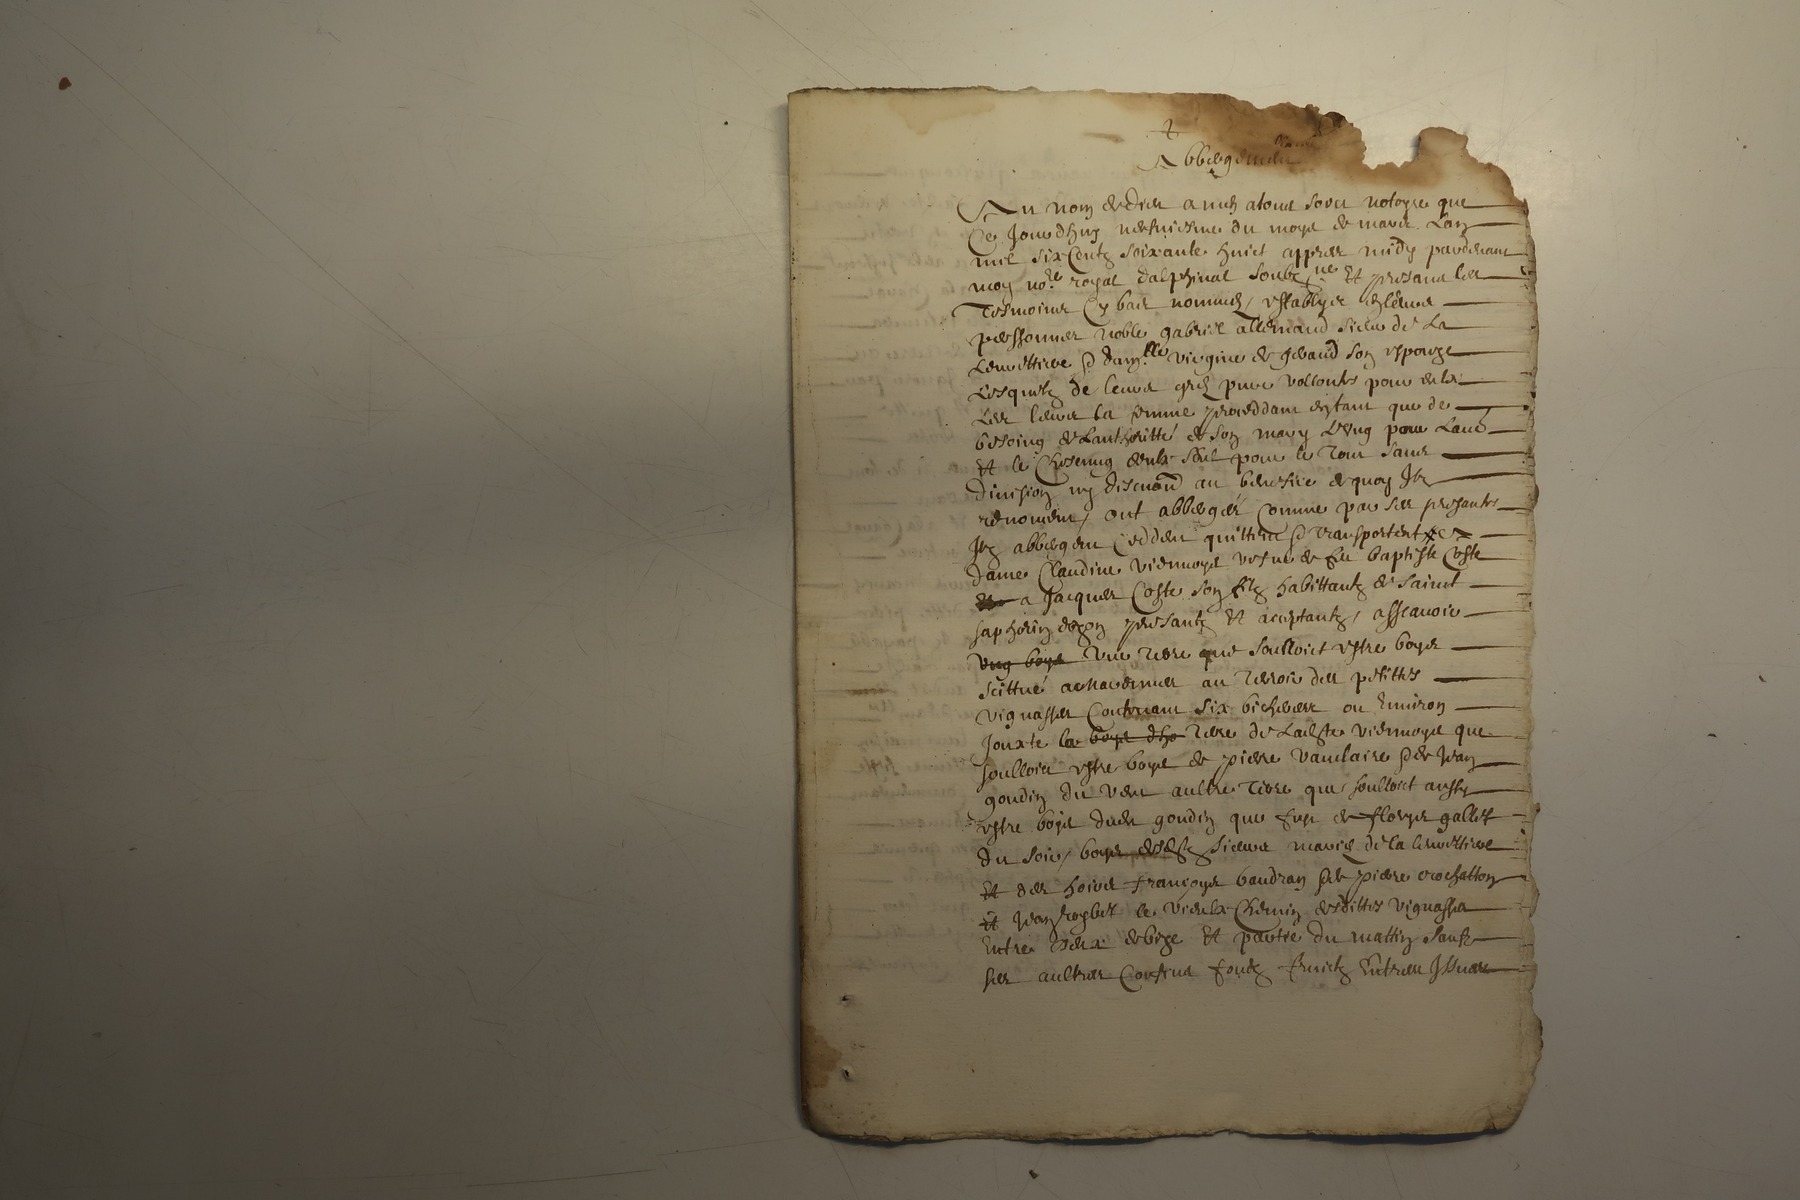 Abbergement
Au nom de dieu amen a tous soict notoyre que
Ce Jourdhuy neufviesme du moys de mars Lan
mil six Centz soixante huict appres midy pardevant
moy no.re royal dalphinal soubz.ne et presans les
Tesmoins Cy bas nommez / establys en leurs
personnes noble gabriel allemand sieur de La
Levrettiere & dam.lle virgine de giraud son espouze
Lesquelz de leurs grez pure vollonte pour eulx
Les leurs la femme proceddant en tant que de
besoing de Lauthoritté de son mary L'ung pour Laut
et le Chescung deulx seul pour le Tout sans
division ny discution au benefice de quoy Ilz
renoncent / ont abbergés comme par ses presantes
Ilz abbergent Ceddent quittent & transportent a
dame Claudine viennoys vefve de feu baptiste Coste
et a Jacques Coste son filz habittantz de Saint
saphorin dozon presantz et aceptantz / asscavoir
ung boys une Terre que soulloict estre boys
scittué a au Terroir des petittes
vignasses Contenant six bicherees ou Environ
Jouxte les boys Terre de Ladicte viennoys que
soulloict estre boys de pierre vauclaire & de Jean
goudin du vent aultre Terre que soulloict aussy
estre boys dudit goudin que fust de flories gallet
du soir / boys sieurs mariez de la levrettiere
et des hoirs françoys baudran & de pierre crochatton
et Jean le vieulx Chemin desdittes vignasses
Entre deux de bize et partie du mattin sauf
ses aultres Confins fondz fruictz Entrees Issues